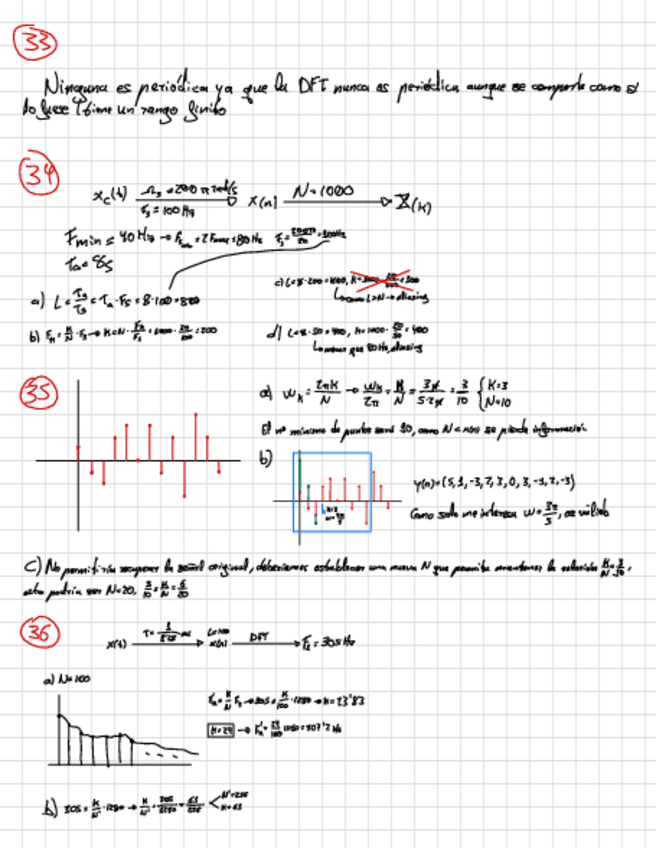 33
Ninguna es periódica ya que la DFT nunca es periódica aunque se comporta como si
lo fuese (tiene un rango finito
34
x_c(t) Ω_s = 200π rad/s X(n) N=1000 X(k)
F_s = 100 Hz
T_a = 8s
a) L = T_a/T_s = T_a · F_s = 8·100 = 800
c) L = 8·200 = 1600,
como L>N → aliasing
d) L = 8·50 = 400,
menor que 80Hz, aliasing
35
a) W_k = 2πK/N → W_k/2π = K/N = 3π/5·2π = 3/10 { K=3
N=10
El nº mínimo de puntos será 10, como N < se pierde información
b)
y(n) = (5, 1, -3, 2, 3, 0, 3, -1, 2, -3)
Como solo me interesa W = 3π/5, es válido
C) No permitiría recuperar la señal original, deberíamos establecer una nueva N que permita mantener la relación K/N = 3/10,
esta podría ser N=20, 3/10 = K/N = 6/20
36
x(t) x(n) DFT F_k = 305 Hz
a) N=100
F_k = K/N F_s → 305 = K/100 · 1280 → K = 23'83
K=24
b) 305 = K/N' · 1280 → K/N' = 305/1280 = 61/256 < N'=256
K=61